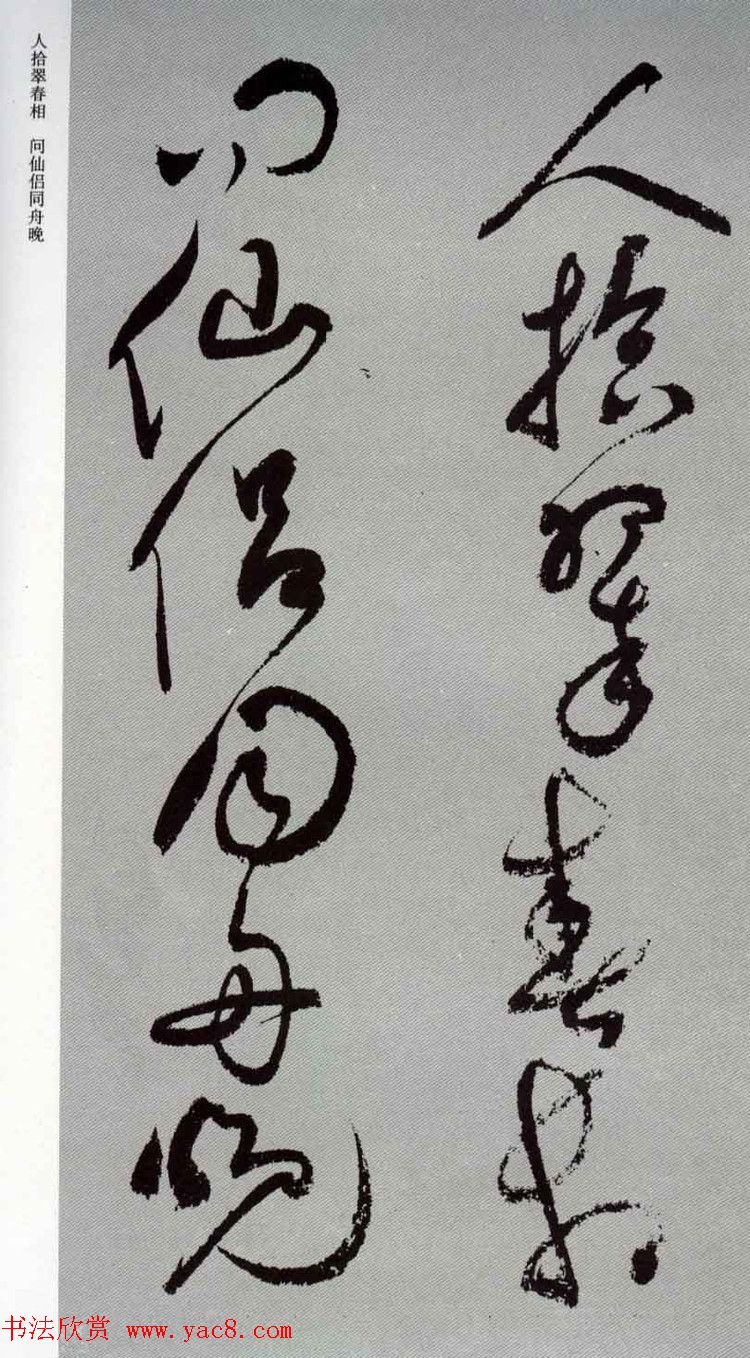 人拾翠春相
问仙侣同舟晚
人拾翠春相 问仙侣同舟晚
书法欣赏 www.yac8.com